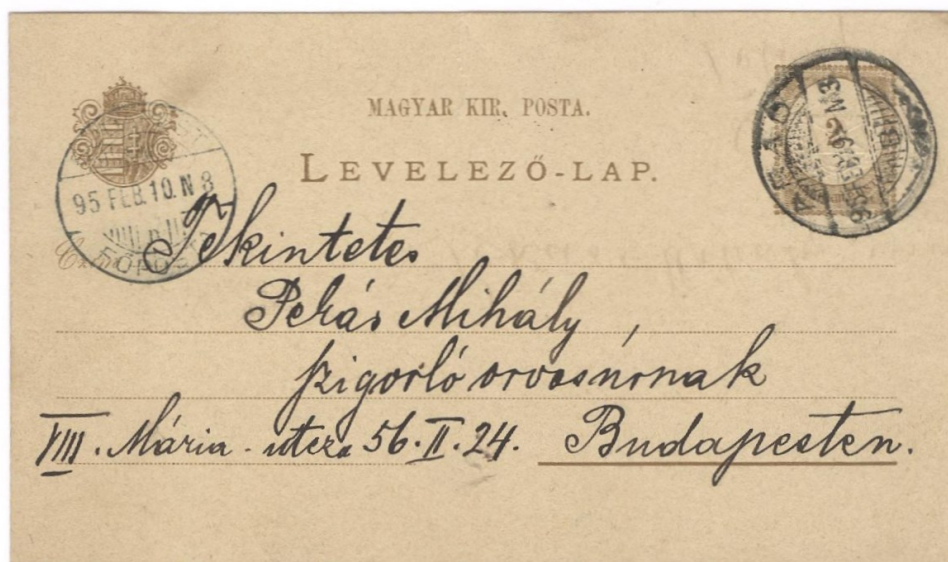 MAGYAR KIR. POSTA.
LEVELEZŐ-LAP.
ARAD
95 FEB. 10. N 8
FŐPOS
Tekintetes
Pekás Mihály
szigorló orvosúrnak
VIII. Mária-utcza 56. II. 24. Budapesten.